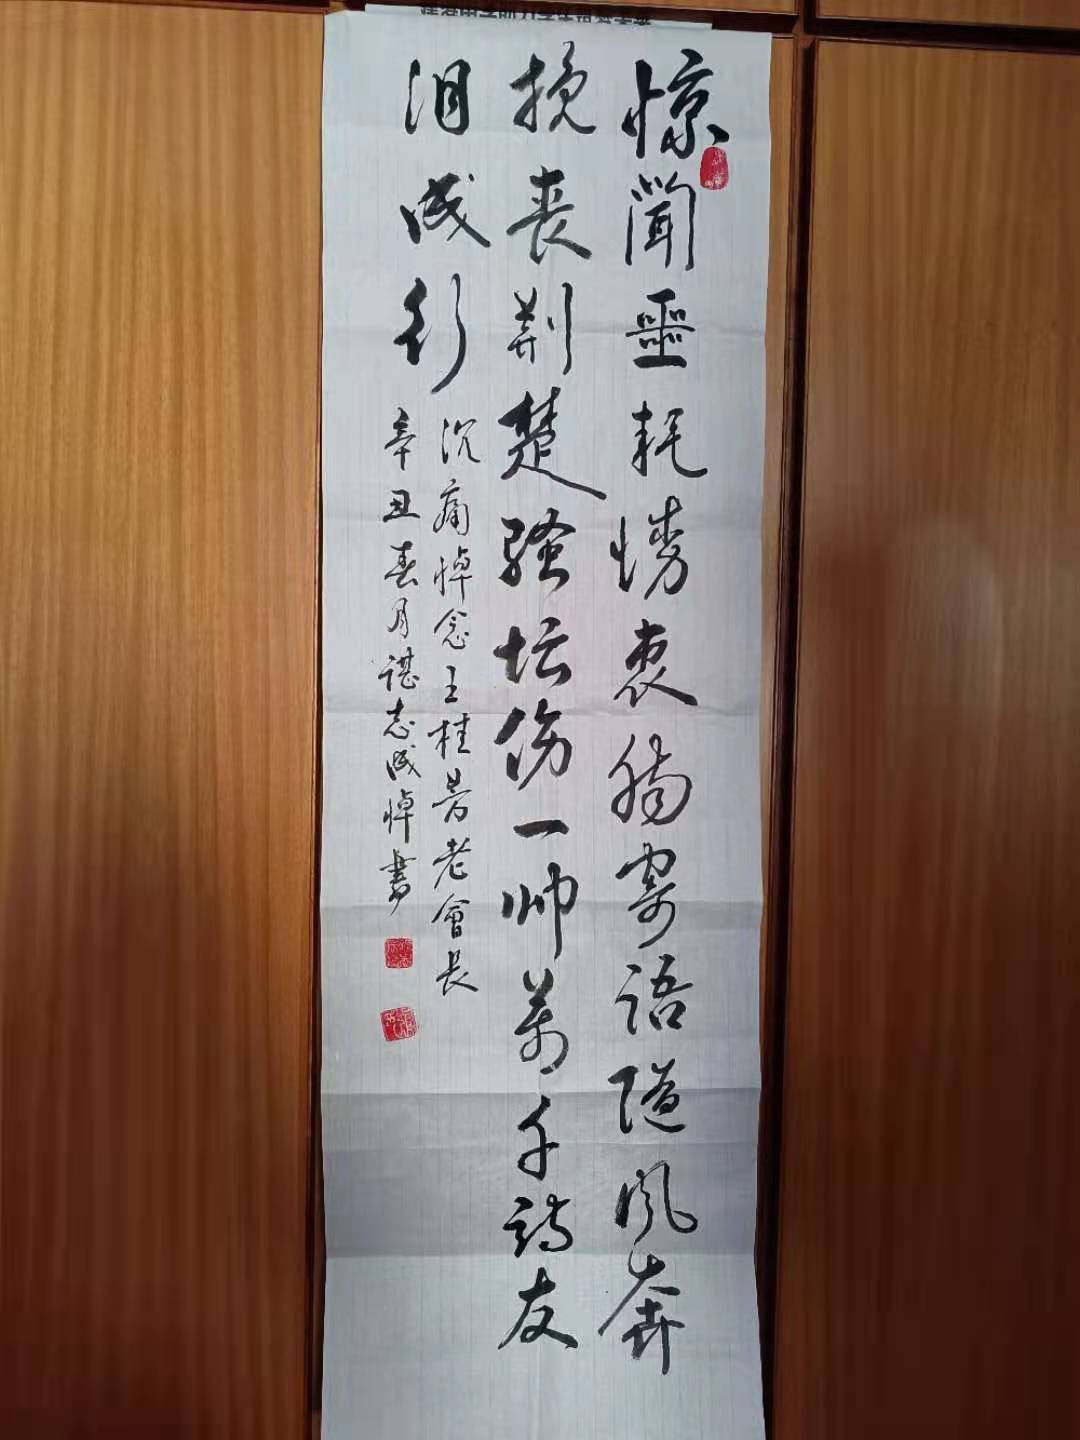 惊闻噩耗情衷肠寄语随风奔
挽丧荆楚骚坛伤一帅万千诗友
泪成行
沉痛悼念王桂芳老會长
辛丑春月谌志成悼書